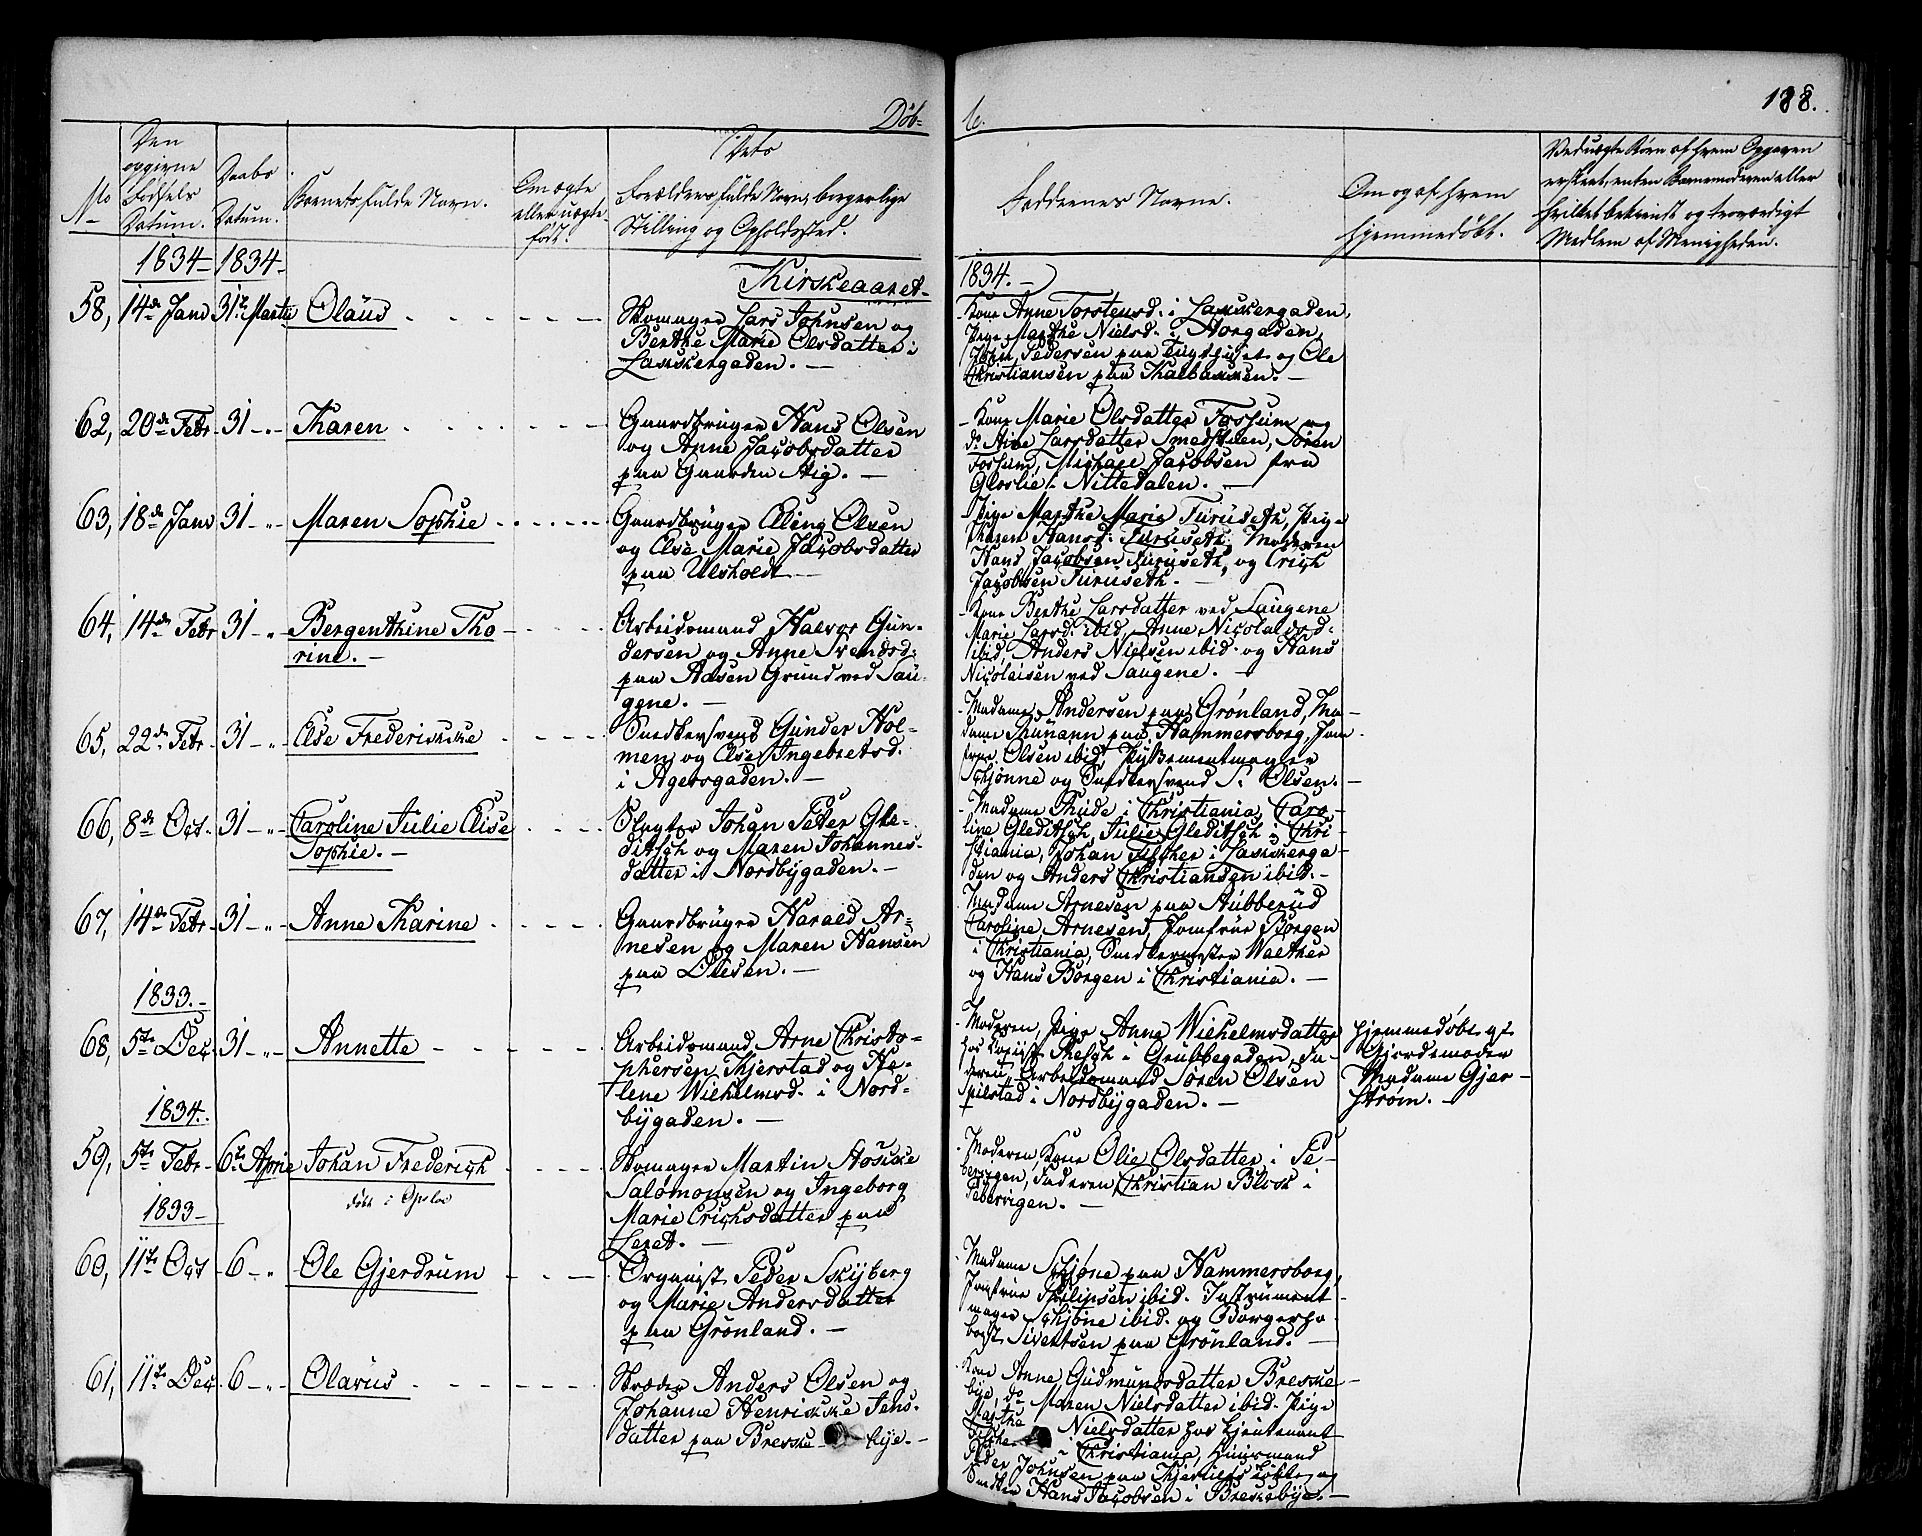 Døb-
te.
188.
No
Den
opgivne
Fødsels
Datum.
Daabs
Datum.
Barnets fulde Navn.
Om ægte
eller uægte
født.
Dets
Forældres fulde Navn, borgerlige
Stilling og Opholdssted.
Faddernes Navne.
Om og af hvem
hjemmedøbt.
Ved uægte Børn af hvem Opgaven
er skeet, enten Barnemoderen eller
hvilket bekiendt og troværdigt
Medlem af Menigheden.
1834 1834
Kirkeaaret
1834.
58, 14de Janr 31te Martii Olaus
Skomager Lars Johnsen og
Berthe Marie Olsdatter i
Lakkergaden.
Kone Anne Torstensd. i Lakkergaden,
Pige Marthe Nielsd. i Storgaden,
John Pedersen paa Tugthuset og Ole
Christiansen paa Kalbakken.
62, 20de Febr 31 Karen
Gaardbruger Hans Olsen
og Anne Jacobsdatter
paa Gaarden Aig.
Kone Marie Olsdatter Fossum og
do Aise Larsdatter Smedstalen, Søren
Fossum, Michael Jacobsen fra
Gloslie i Nittedalen.
63, 18de Janr 31 Maren Sophie
Gaardbruger Elling Olsen
og Else Marie Jacobsdatter
paa Ulsholdt
Pige Marthe Marie Furuseth, Pige
Karen Hansd. Furuseth, Moderen
Hans Jacobsen Furuseth, og Erich
Jacobsen Furuseth.
64, 14de Febr 31 Bergenthine Tho
rine.
Arbeidsmand Halvor Gun-
dersen og Anne Svendsd.
paa Aasen Grund ved Sau-
gene.
Kone Berthe Larsdatter ved Saugene
Marie Larsd. ibid, Anne Nicolaisd.
ibid, Anders Nielsen ibid. og Hans
Nicolaisen ved Saugene.
65, 22de Febr 31 Else Frederikke
Snedkersvend Gunder Hol-
men og Else Ingebretsd.
i Agersgaden.
Madame Andersen paa Grønland, Ma-
dame Thunann paa Hammersborg, Jom-
frue Olsen ibid, Instrumentmager
Schjønne og Snedkersvend S. Olsen.
66, 8de Oct 31 Caroline Julie Elise
Sophie.
Slagter Johan Peter Gle-
ditsch og Maren Johannes-
datter i Nordbygaden.
Madame Thude i Christiania, Caro-
line Gleditsch, Julie Gleditsch i Chri-
stiania, Johan Fischer i Lakkerga-
den og Anders Christiansen ibid.
67, 14de Febr 31 Anne Karine
Gaardbruger Harald Ar-
nesen og Maren Hansen
paa Disen.
Madame Arnesen paa Stubberud
Caroline Arnesen, Jomfrue Borgen
i Christiania, Snedkermester Walther
og Hans Borgen i Christiania.
1833.
68, 5te Dec. 31 Annette
Arbeidsmand Arne Christo-
phersen Kjerstad og He-
lene Wilhelmsd. i Nord-
bygaden.
Moderen, Pige Anne Wilhelmsdatter
hos Copiist Resch i Grubbegaden, Fa-
deren, Arbeidsmand Søren Olsen
Spilstad i Nordbygaden.
Hjemmedøbt af
Gjordemoder
Madame Gjer-
strøm.
1834.
59, 5te Febr 6te April Johan Frederich
døbt i Opslo
Skomager Martin Hosike
Salomonsen og Ingeborg
Marie Erichsdatter paa
Leret.
Moderen, Kone Olie Olsdatter i Pi-
bervigen, Faderen, Christian Block i
Pibervigen.
1833
60, 11te Oct 6 Ole Gjerdrum
Organist Peder Skyberg
og Marie Andersdatter
paa Grønland.
Madame Schjøne paa Hammersborg,
Jomfrue Philipsen ibid. Instrument-
mager Schjøne ibid. og Borgerfo-
gt Sivertsen paa Grønland.
61, 11te Dec. 6 Olavus
Skræder Anders Olsen og
Johanne Henrikke Jens-
datter paa Breske bye.
Kone Anne Gudmunsdatter Breske-
bye, do Maren Nielsdatter ibid. Pige
Marthe Nielsdatter hos Lieutenant
Fischer i Christiania, Huusmand
Peder Johnsen paa Kjertils Løkke, og
Snedker Hans Jacobsen i Breskebye.